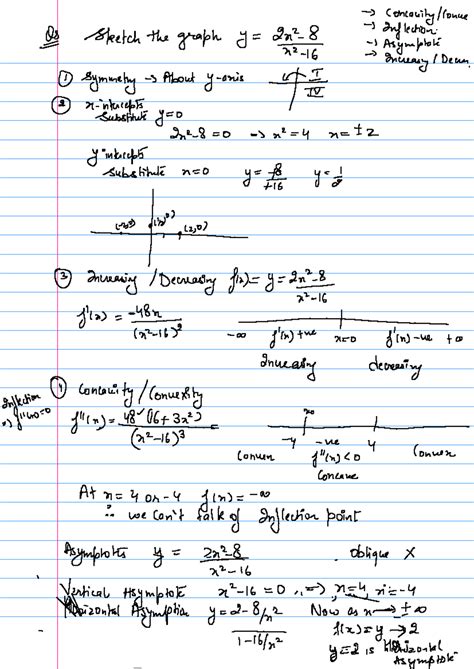 Q: Sketch the graph y = 2x²-8 / x²-16
→ Concavity/Convex
→ Inflection
→ Asymptote
→ Increasing / Decre
① Symmetry → About y-axis
I
IV
② x-intercepts
Substitute y=0
2x²-8=0 → x²=4 x=±2
y intercepts
Substitute x=0 y = -8/-16 y = 1/2
(2,0)
③ Increasing / Decreasing f(x) = y = 2x²-8 / x²-16
f'(x) = -48x / (x²-16)²
-∞ f'(x) +ve x=0 f'(x) -ve +∞
Increasing decreasing
④ Concavity / Convexity
Inflection
f''(x)=0
f''(x) = 48(16+3x²) / (x²-16)³
-4 -ve 4
Convex f''(x)<0 Convex
Concave
At x=4 or -4 f(x) = -∞
∴ we can't talk of Inflection point
Asymptotes y = 2x²-8 / x²-16 oblique X
Vertical Asymptote x²-16=0 ⇒ x=4, x=-4
Horizontal Asymptote y = 2-8/x² / 1-16/x² Now as x→±∞
f(x)=y→2
y=2 is Horizontal
Asymptote